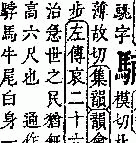 字 模切
薄故切集韻韻會
步左傳哀二十
治急世之民猶
高六尺也 通作
馬牛尾白身一